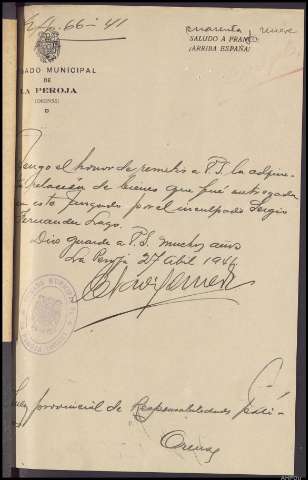 66-41
cuarenta y nueve
SALUDO A FRANCO:
¡ARRIBA ESPAÑA!
GADO MUNICIPAL
DE
LA PEROJA
(ORENSE)
Tengo el honor de remitir a V.S. la adjun-
relación de bienes que fué entregada
en este juzgado por el inculpado Sergio
Fernandez Lago.
Dios guarde a V.S. muchos años
La Peroja 27 Abril 194
Juez provincial de Responsabilidades politi-
Orense